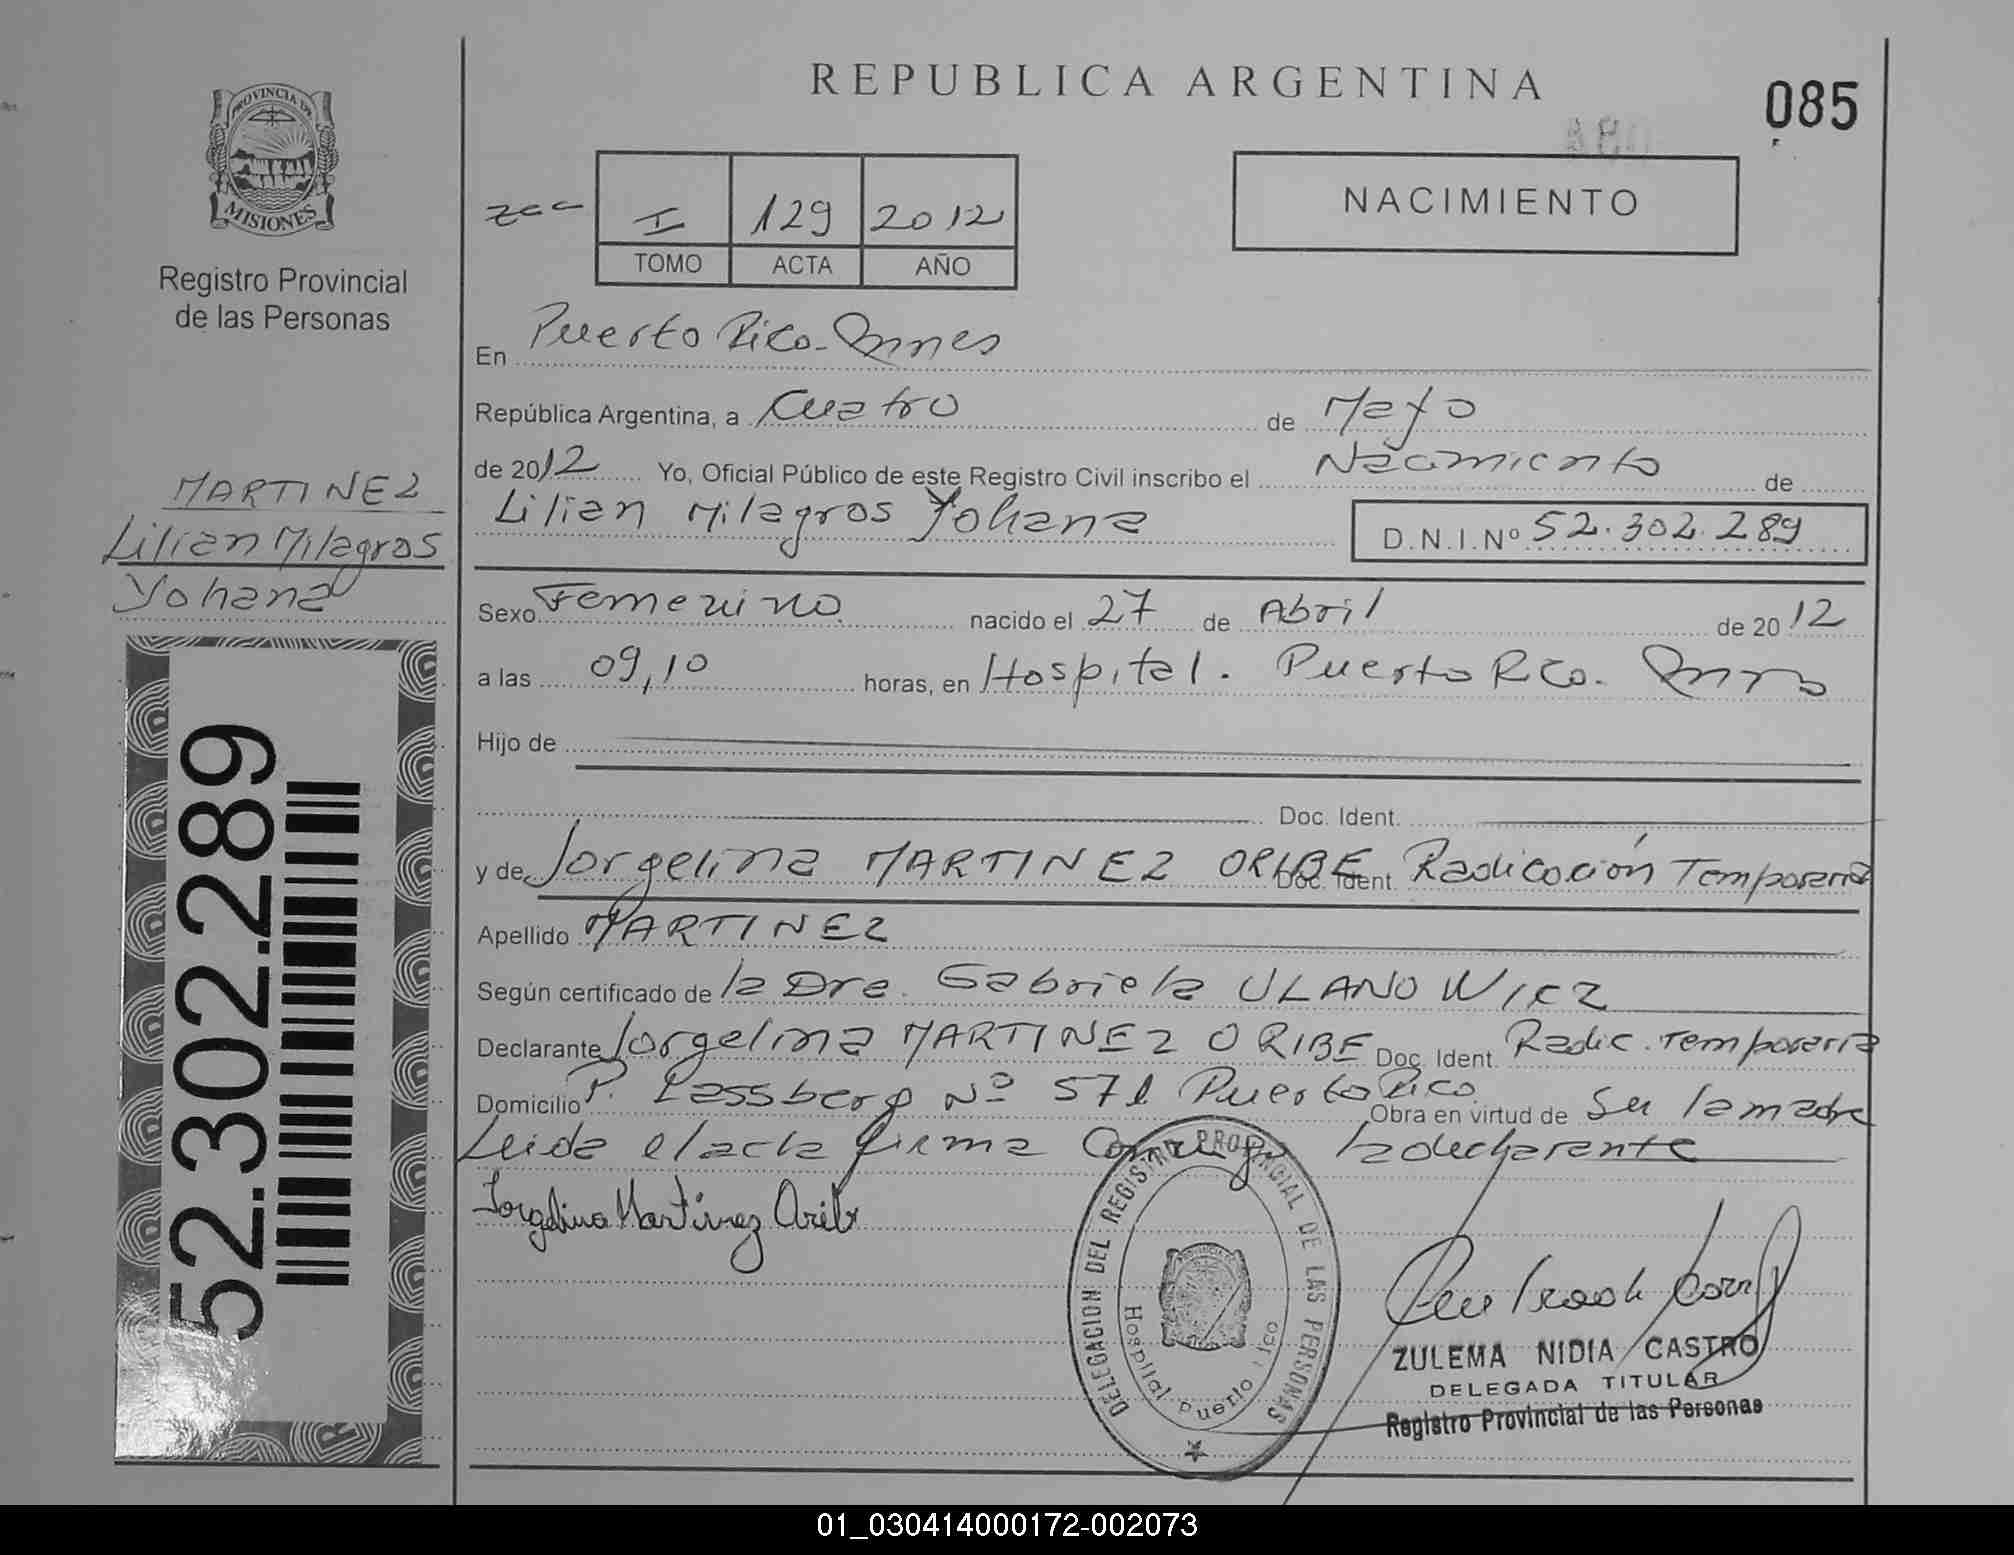 REPUBLICA ARGENTINA
085
PROVINCIA DE
MISIONES
Registro Provincial
de las Personas
I 129 2012
TOMO ACTA AÑO
NACIMIENTO
En Puerto Rico - Mnes
República Argentina, a Cuatro de Mayo
de 2012 Yo, Oficial Público de este Registro Civil inscribo el Nacimiento de
Lilian Milagros Yohana D.N.I.Nº 52.302.289
MARTINEZ
Lilian Milagros
Yohana
52.302.289
Sexo Femenino nacido el 27 de Abril de 2012
a las 09,10 horas, en Hospital. Puerto Rico. Mnes
Hijo de
Doc. Ident.
y de Jorgelina MARTINEZ ORIBE Doc. Ident. Radicación Temporaria
Apellido MARTINEZ
Según certificado de la Dra. Gabriela ULANOWICZ
Declarante Jorgelina MARTINEZ ORIBE Doc. Ident. Radic. Temporaria
Domicilio P. Lassberg Nº 571 Puerto Rico Obra en virtud de Ser la madre
Leida el acta firma Conmigo la declarante
Jorgelina Martinez Oribe
DELEGACION DEL REGISTRO PROVINCIAL DE LAS PERSONAS
Hospital Puerto Rico
ZULEMA NIDIA CASTRO
DELEGADA TITULAR
Registro Provincial de las Personas
01_030414000172-002073